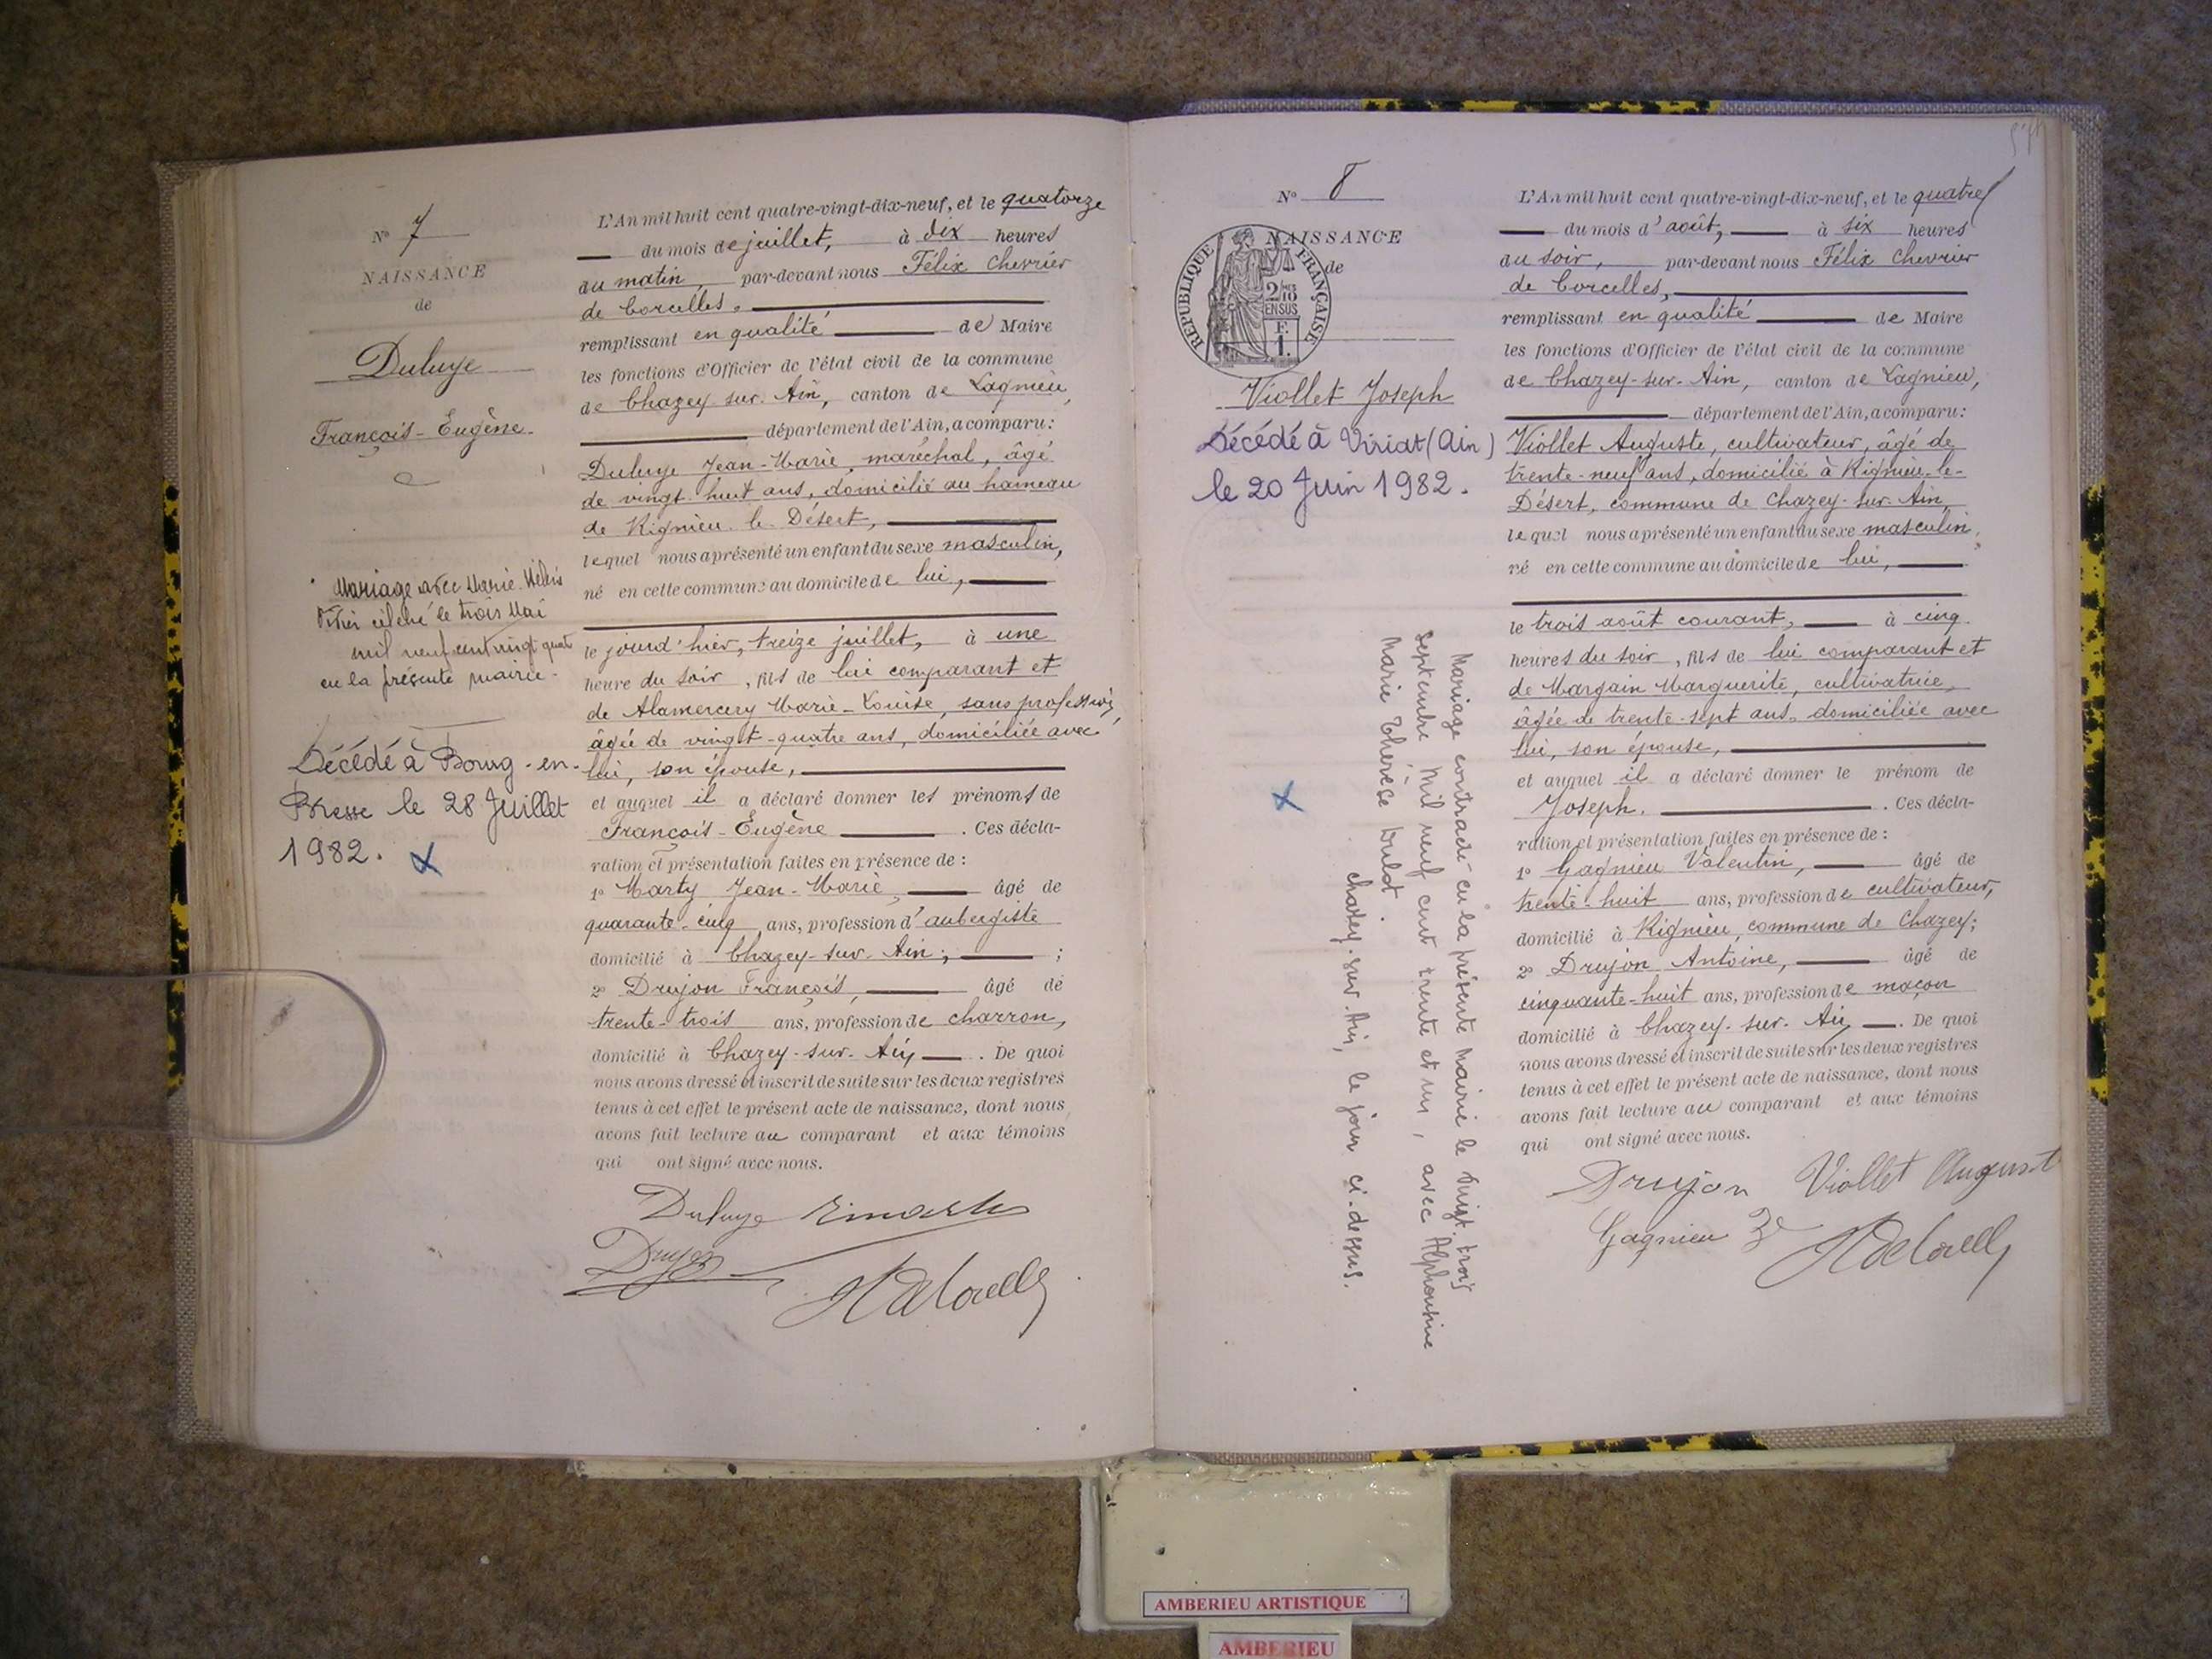 N° 7
NAISSANCE
de
Duluye
François-Eugène
Mariage avec Marie
célébré le trois Mai
mil neuf cent vingt quat
en la présente mairie.
Décédé à Bourg-en-
Bresse le 28 Juillet
1982.
L'An mil huit cent quatre-vingt-dix-neuf, et le quatorze
du mois de juillet, à dix heures
du matin, par-devant nous Félix Chevrier
de Corcelles,
remplissant en qualité de Maire
les fonctions d'Officier de l'état civil de la commune
de Chazey-sur-Ain, canton de Lagnieu,
département de l'Ain, a comparu :
Duluye Jean-Marie, maréchal, âgé
de vingt-huit ans, domicilié au hameau
de Rignieu-le-Désert,
lequel nous a présenté un enfant du sexe masculin,
né en cette commune au domicile de lui,
le jourd'hier, treize juillet, à une
heure du soir, fils de lui comparant et
de Alamercery Marie-Louise, sans profession,
âgée de vingt-quatre ans, domiciliée avec
lui, son épouse,
et auquel il a déclaré donner les prénoms de
François-Eugène . Ces décla-
ration et présentation faites en présence de :
1° Marty Jean-Marie, âgé de
quarante-cinq ans, profession d'aubergiste
domicilié à Chazey-sur-Ain, ;
2° Drujon François, âgé de
trente-trois ans, profession de charron,
domicilié à Chazey-sur-Ain . De quoi
nous avons dressé et inscrit de suite sur les deux registres
tenus à cet effet le présent acte de naissance, dont nous
avons fait lecture au comparant et aux témoins
qui ont signé avec nous.
Duluye
Drujon
N° 8
NAISSANCE
de
RÉPUBLIQUE FRANÇAISE
2/10 EN SUS
F. 1.
Viollet Joseph
Décédé à Viriat (Ain)
le 20 Juin 1982.
Mariage contracté en la présente Mairie le vingt-trois
septembre Mil neuf cent trente et un, avec Alphonsine
Marie Thérèse Dulot.
Chazey-sur-Ain, le jour ci-dessus.
L'An mil huit cent quatre-vingt-dix-neuf, et le quatre
du mois d'août, à six heures
du soir, par-devant nous Félix Chevrier
de Corcelles,
remplissant en qualité de Maire
les fonctions d'Officier de l'état civil de la commune
de Chazey-sur-Ain, canton de Lagnieu,
département de l'Ain, a comparu :
Viollet Auguste, cultivateur, âgé de
trente-neuf ans, domicilié à Rignieu-le-
Désert, commune de Chazey-sur-Ain,
lequel nous a présenté un enfant du sexe masculin,
né en cette commune au domicile de lui,
le trois août courant, à cinq
heures du soir, fils de lui comparant et
de Margain Marguerite, cultivatrice,
âgée de trente-sept ans, domiciliée avec
lui, son épouse,
et auquel il a déclaré donner le prénom de
Joseph. . Ces décla-
ration et présentation faites en présence de :
1° Gagnieu Valentin, âgé de
trente-huit ans, profession de cultivateur,
domicilié à Rignieu, commune de Chazey ;
2° Drujon Antoine, âgé de
cinquante-huit ans, profession de maçon
domicilié à Chazey-sur-Ain . De quoi
nous avons dressé et inscrit de suite sur les deux registres
tenus à cet effet le présent acte de naissance, dont nous
avons fait lecture au comparant et aux témoins
qui ont signé avec nous.
Drujon Viollet August
Gagnieu
AMBERIEU ARTISTIQUE
AMBERIEU